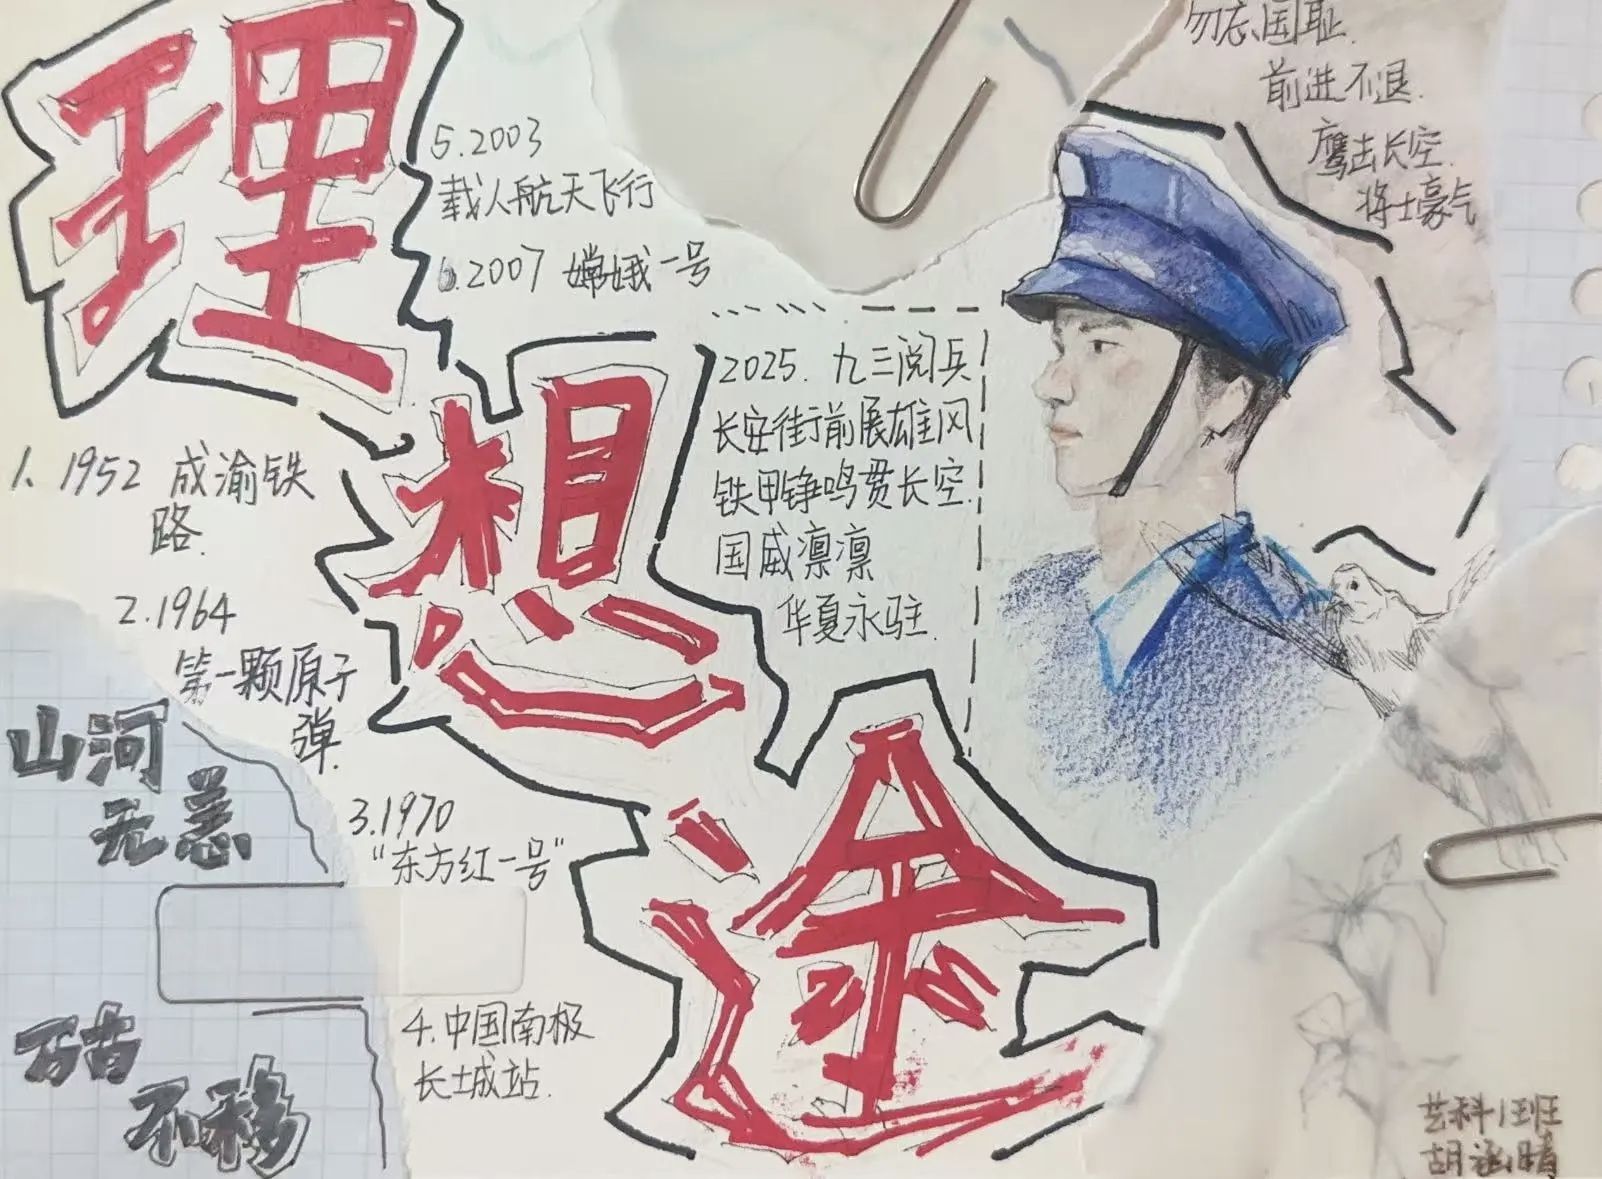 理想途
勿忘国耻
前进不退.
鹰击长空.
将士豪气
5.2003
载人航天飞行
6.2007 嫦娥一号
2025. 九三阅兵
长安街前展雄风
铁甲铮鸣贯长空.
国威凛凛
华夏永驻.
1. 1952 成渝铁
路.
2.1964
第一颗原子
弹.
3.1970
“东方红一号”
4.中国南极
长城站.
山河
无恙
不移
艺科1班
胡涵晴